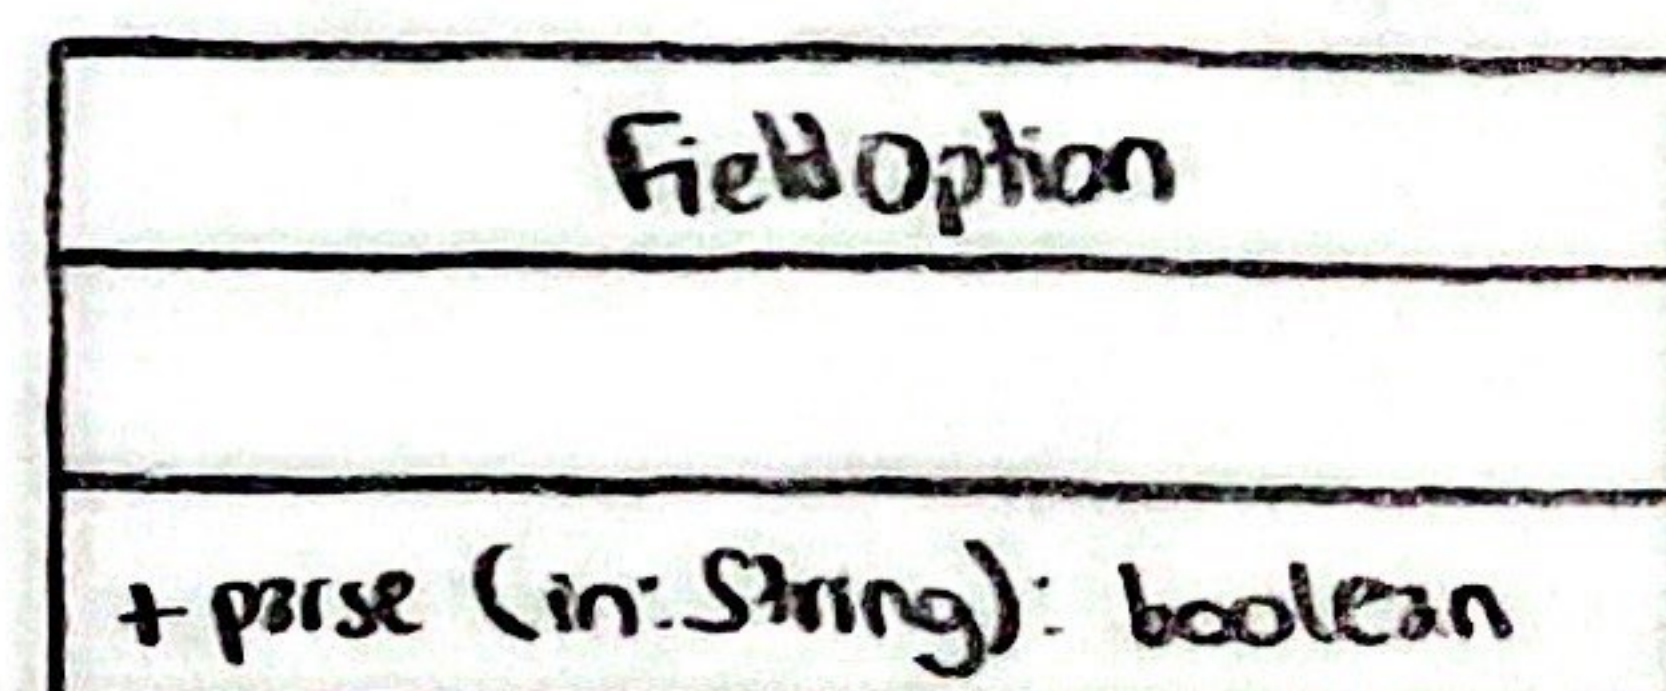 FieldOption
+ parse (in: String): boolean